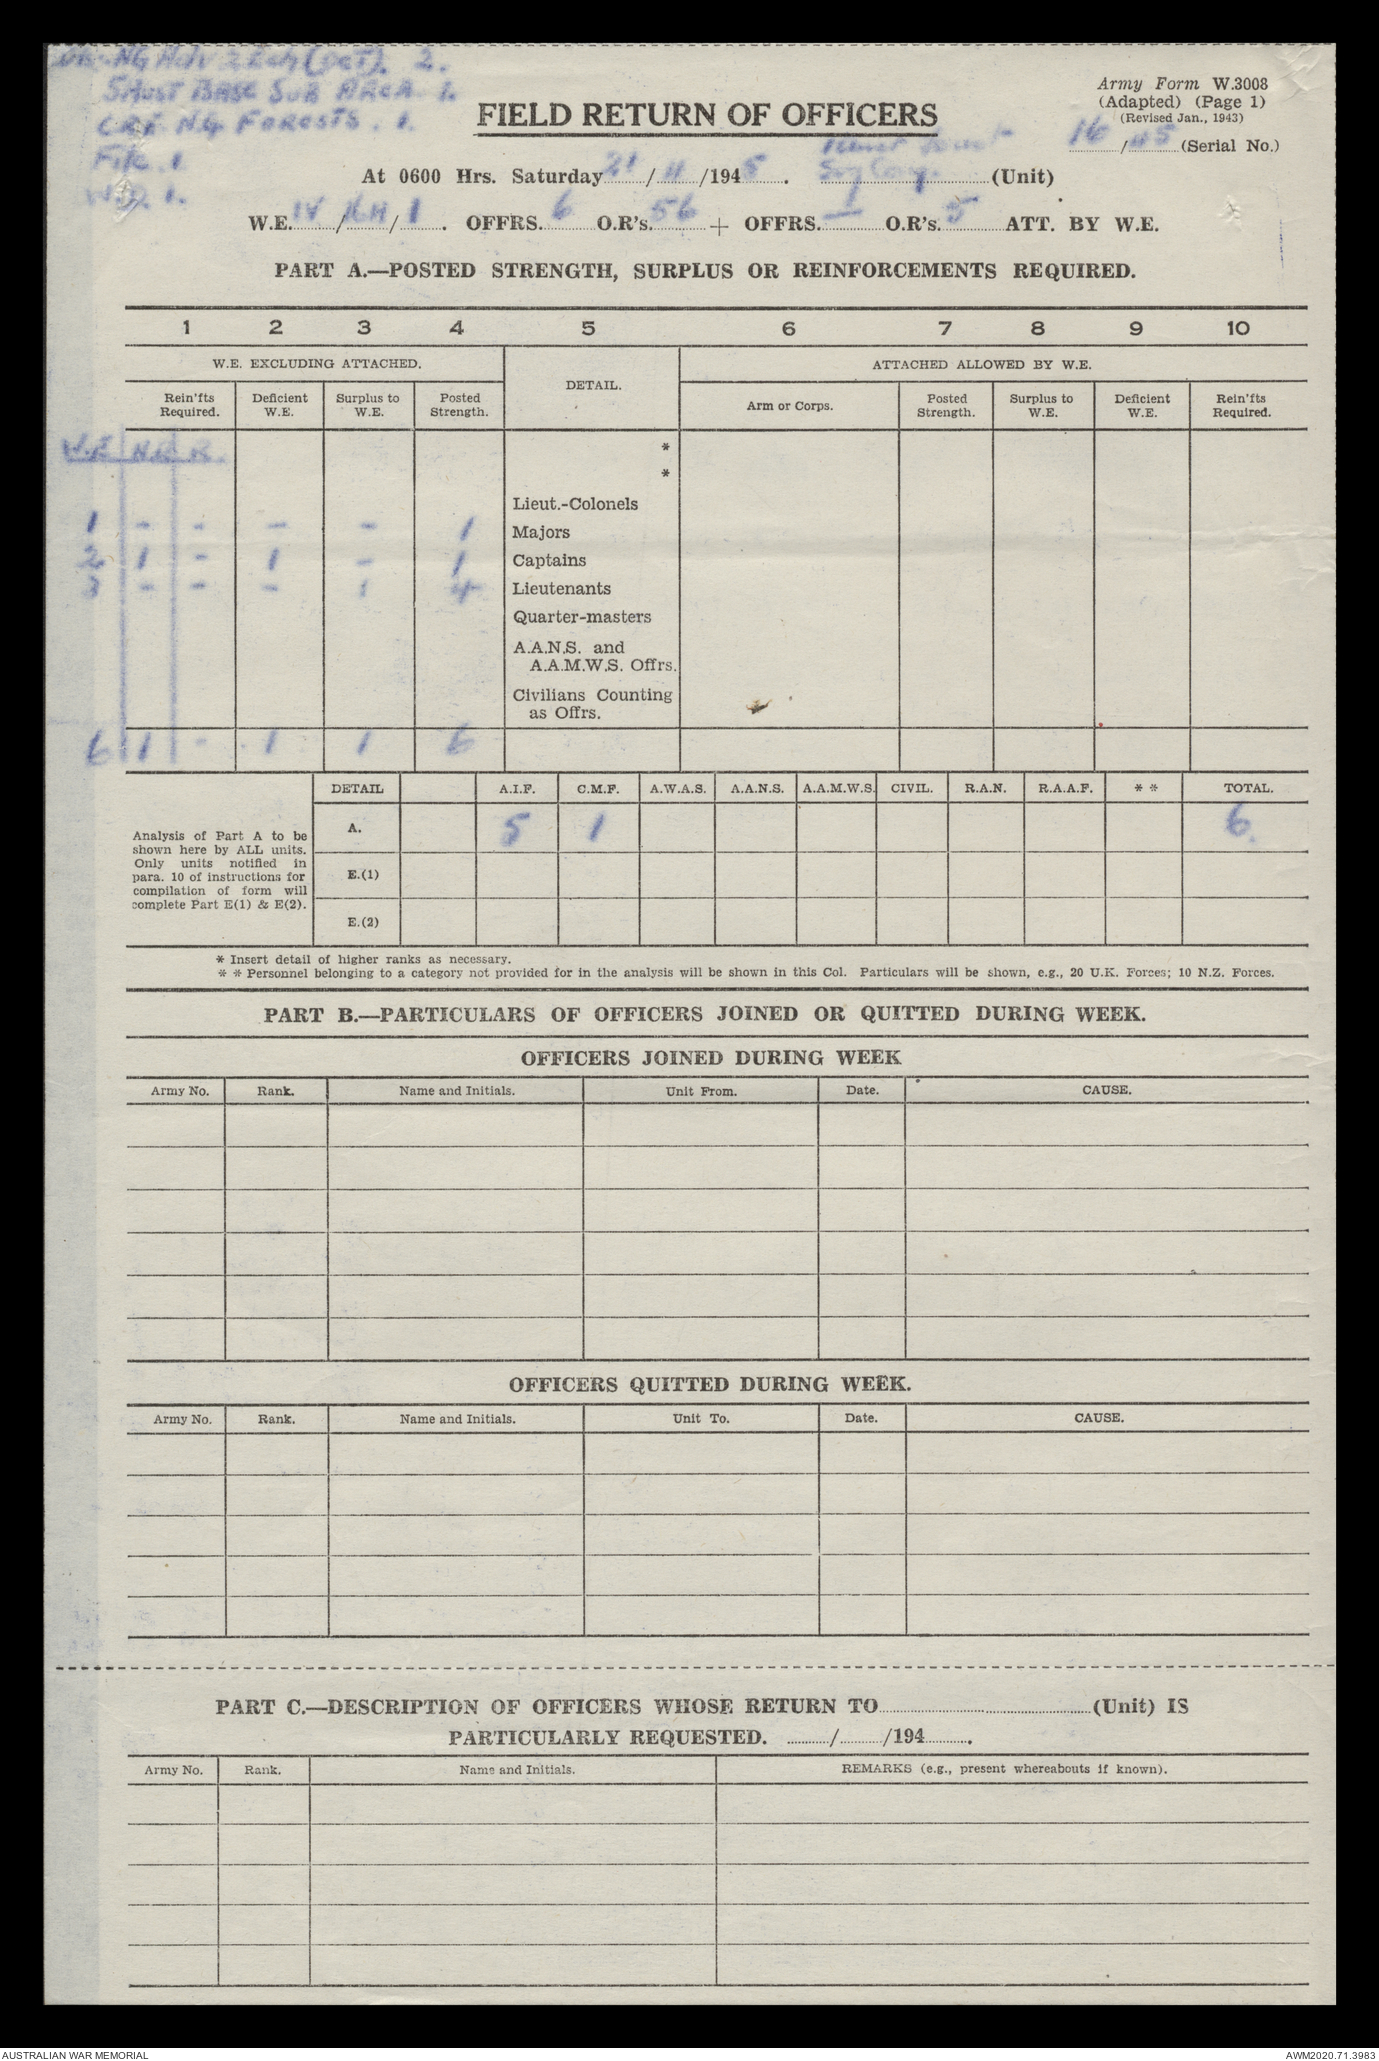 2 Ech (Det). 2.
5 Aust BASE SUB AREA. 1.
CRE N.G FORESTS. 1.
File. 1
W.D. 1.
Army Form W.3008
(Adapted) (Page 1)
(Revised Jan., 1943)
FIELD RETURN OF OFFICERS
16/45 (Serial No.)
At 0600 Hrs. Saturday / 11 /1945. Svy Coy. (Unit)
W.E. IV/16H/1. OFFRS. 6 O.R's. 56 + OFFRS. 1 O.R's. 5 ATT. BY W.E.
PART A.—POSTED STRENGTH, SURPLUS OR REINFORCEMENTS REQUIRED.
1 2 3 4 5 6 7 8 9 10
W.E. EXCLUDING ATTACHED. DETAIL. ATTACHED ALLOWED BY W.E.
Rein'fts Required. Deficient W.E. Surplus to W.E. Posted Strength. Arm or Corps. Posted Strength. Surplus to W.E. Deficient W.E. Rein'fts Required.
W.E N.R R.
*
*
Lieut.-Colonels
1 - - - - 1 Majors
2 1 - 1 - 1 Captains
3 - - - 1 4 Lieutenants
Quarter-masters
A.A.N.S. and
A.A.M.W.S. Offrs.
Civilians Counting
as Offrs.
6 1 - 1 1 6
DETAIL A.I.F. C.M.F. A.W.A.S. A.A.N.S. A.A.M.W.S. CIVIL. R.A.N. R.A.A.F. * * TOTAL.
A. 5 1 6.
E.(1)
E.(2)
Analysis of Part A to be
shown here by ALL units.
Only units notified in
para. 10 of instructions for
compilation of form will
complete Part E(1) & E(2).
* Insert detail of higher ranks as necessary.
* * Personnel belonging to a category not provided for in the analysis will be shown in this Col. Particulars will be shown, e.g., 20 U.K. Forces; 10 N.Z. Forces.
PART B.—PARTICULARS OF OFFICERS JOINED OR QUITTED DURING WEEK.
OFFICERS JOINED DURING WEEK
Army No. Rank. Name and Initials. Unit From. Date. CAUSE.
OFFICERS QUITTED DURING WEEK.
Army No. Rank. Name and Initials. Unit To. Date. CAUSE.
PART C.—DESCRIPTION OF OFFICERS WHOSE RETURN TO (Unit) IS
PARTICULARLY REQUESTED. / /194 .
Army No. Rank. Name and Initials. REMARKS (e.g., present whereabouts if known).
AUSTRALIAN WAR MEMORIAL
AWM2020.71.3983